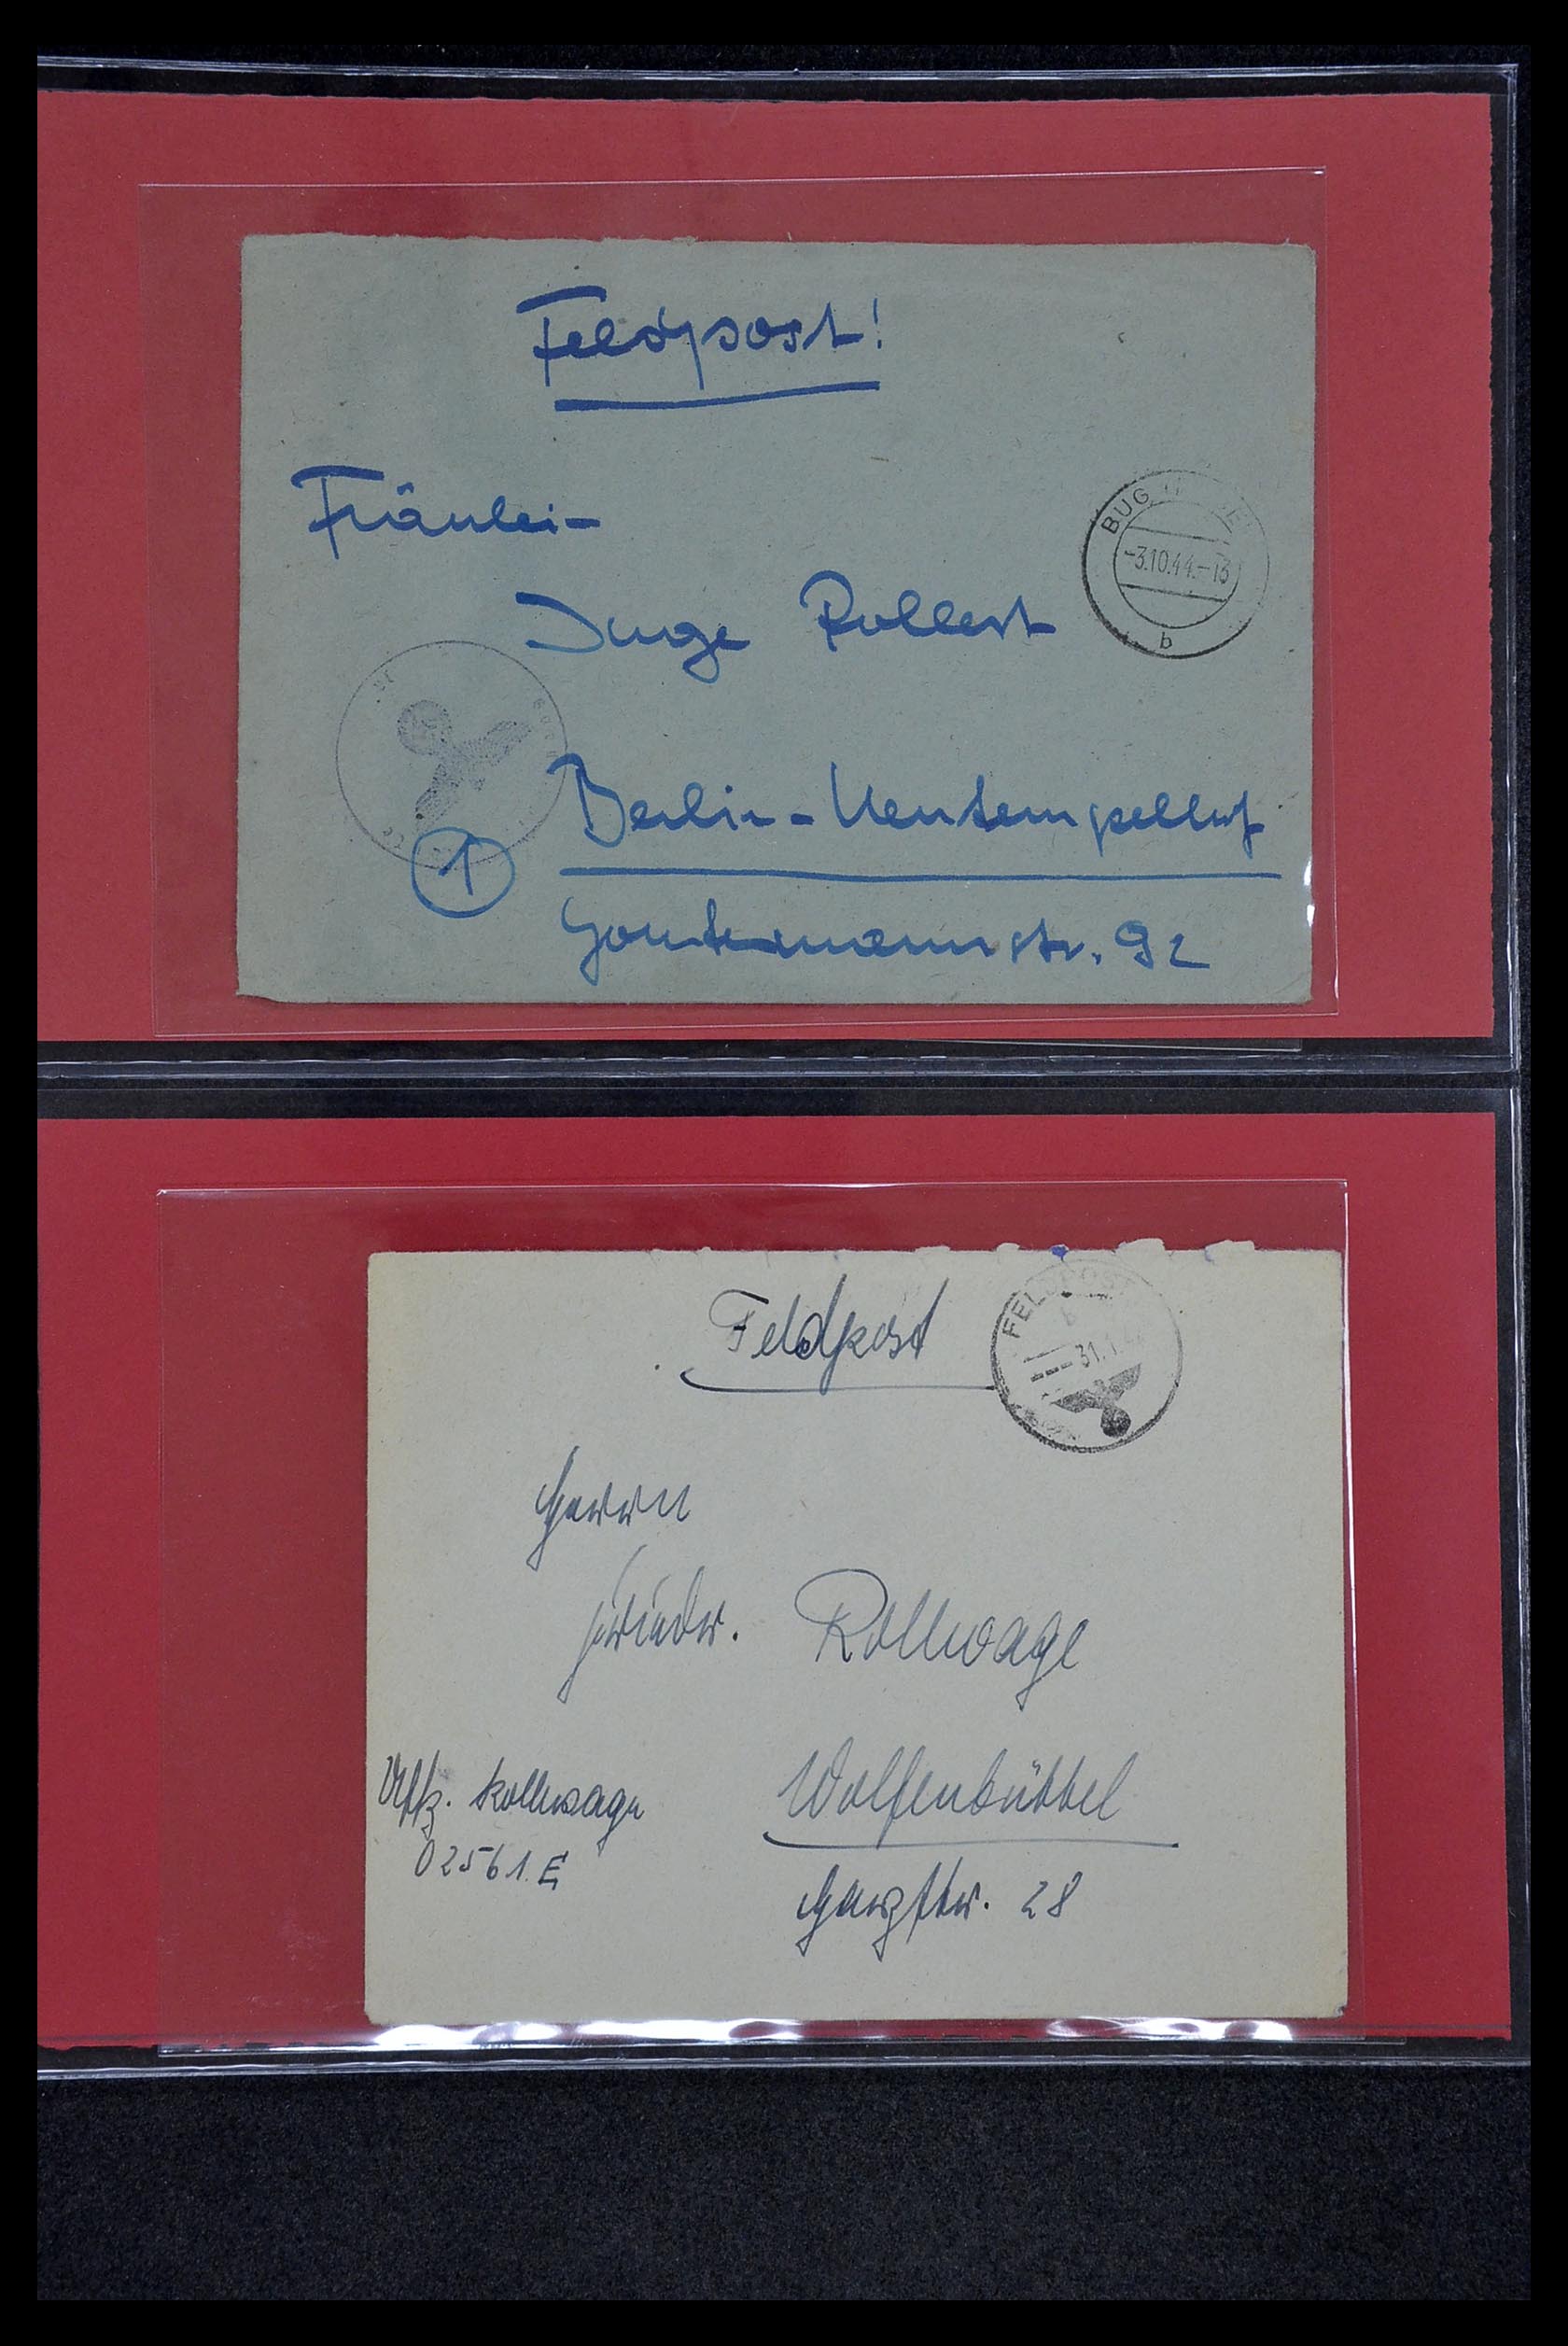 Feldpost!
Fräulein
Inge Rollert
BUG
-3.10.44.-13
b
1
Berlin-Neutempelhof
Gontermannstr. 92
Feldpost
FELDPOST
31.1.
Herrn
Rollwage
Uffz. Rollwage
02561 E
Wolfenbüttel
Harzstr. 28